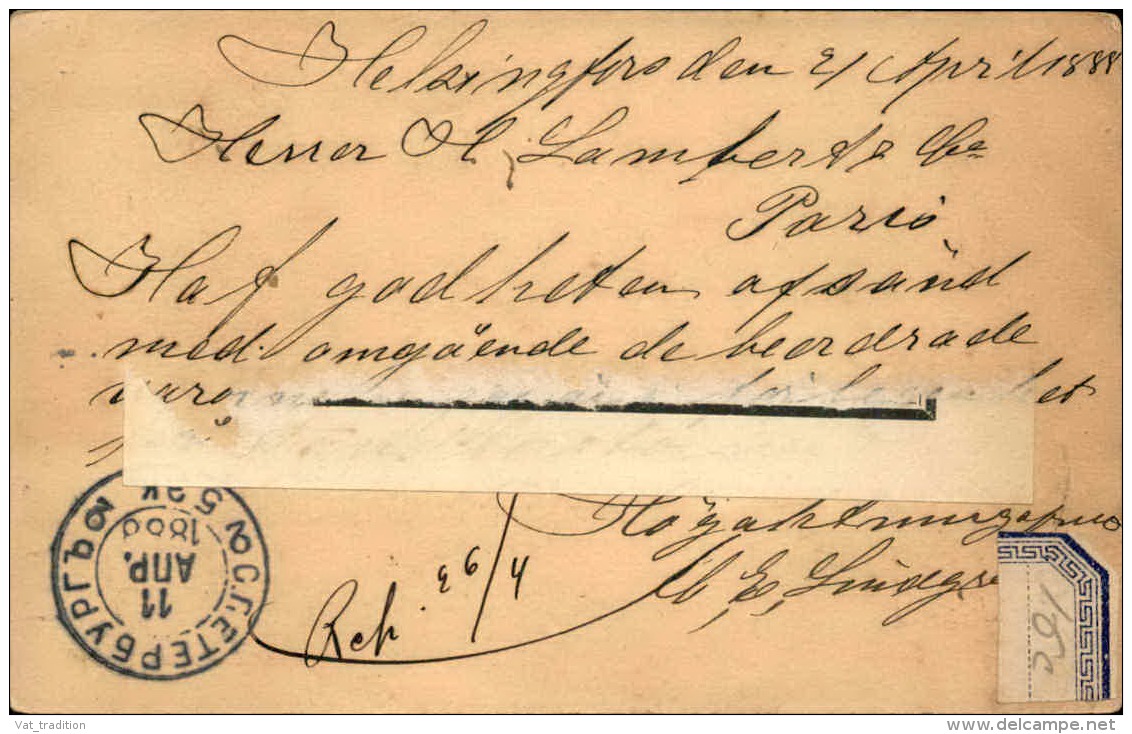 Helsingfors den 21 April 1888
Herrer H. Lambert & Co
Paris
Haf godheten afsänd
med omgående de beordrade
het
Högaktningsfull
C. E. Lindgr
Rep. 26/4
С.ПЕТЕРБУРГЪ
11
АПР.
1888
162
Vat_tradition
delcampe.net